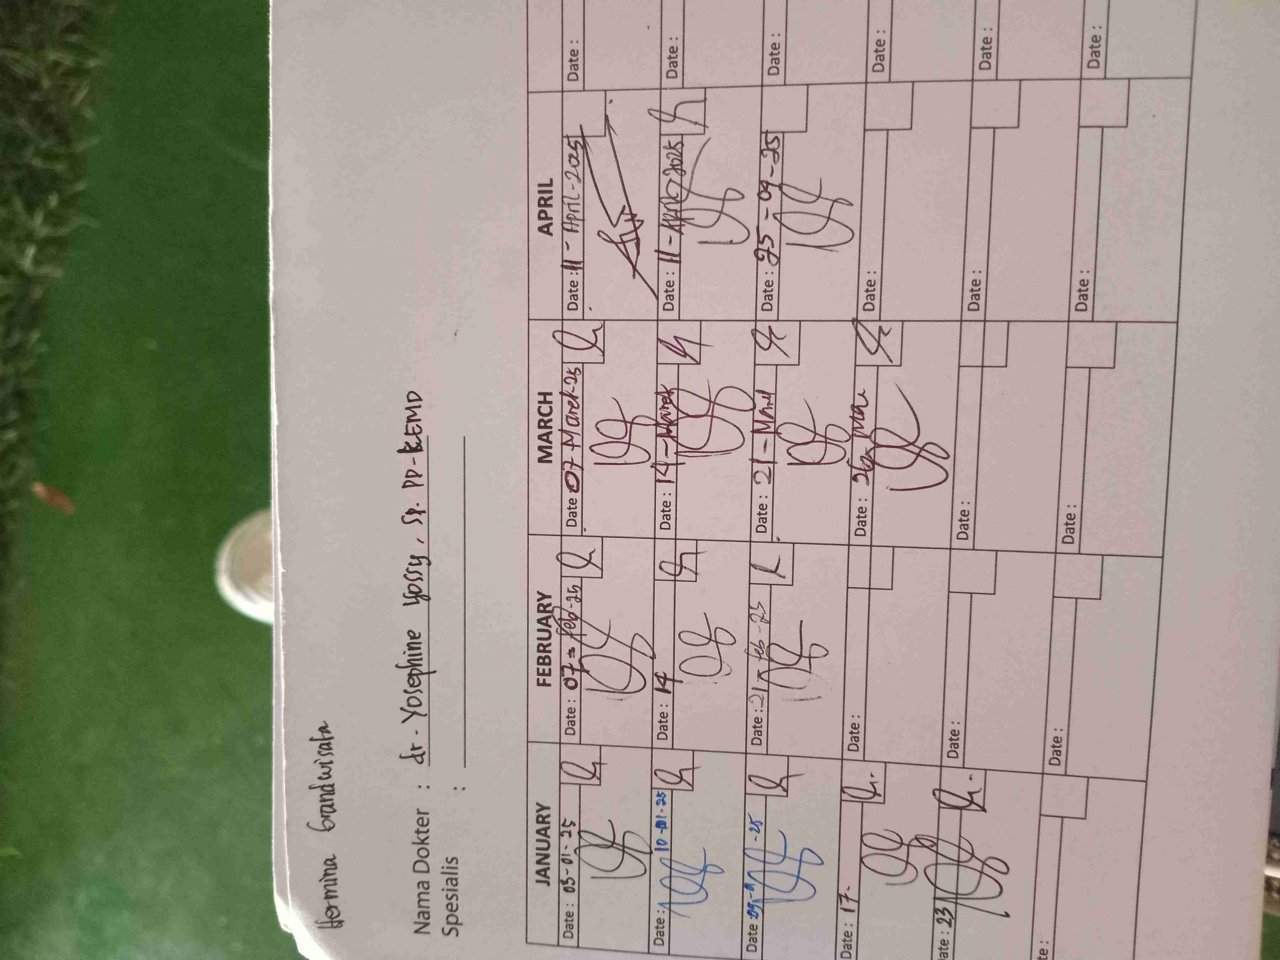 Hermina Grandwisata
Nama Dokter : dr. Yosephine Yossy, Sp. PD-KEMD
Spesialis :
JANUARY FEBRUARY MARCH APRIL
Date : 03-01-25 Date : 07-Feb-25 Date : 07-Maret-25 Date : 11-April-2025 Date :
Date : 10-01-25 Date : 14 Date : 14-Maret Date : 11-April-2025 Date :
Date -25 Date : 21-feb-25 Date : 21-Maret Date : 25-04-25 Date :
Date : 17- Date : Date : 26 Date : Date :
ate : 23 Date : Date : Date : Date :
te : Date : Date : Date : Date :